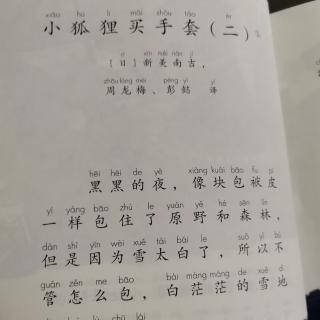 xiǎo hú li mǎi shǒu tào èr
小狐狸买手套（二）
rì xīn měi nán jí
［日］新美南吉，
zhōu lóng méi péng yì yì
周龙梅、彭懿 译
hēi hēi de yè xiàng kuài bāo fu pí
黑黑的夜，像块包袱皮
yí yàng bāo zhù le yuán yě hé sēn lín
一样包住了原野和森林，
dàn shì yīn wèi xuě tài bái le suǒ yǐ bù
但是因为雪太白了，所以不
guǎn zěn me bāo bái máng máng de xuě dì
管怎么包，白茫茫的雪地